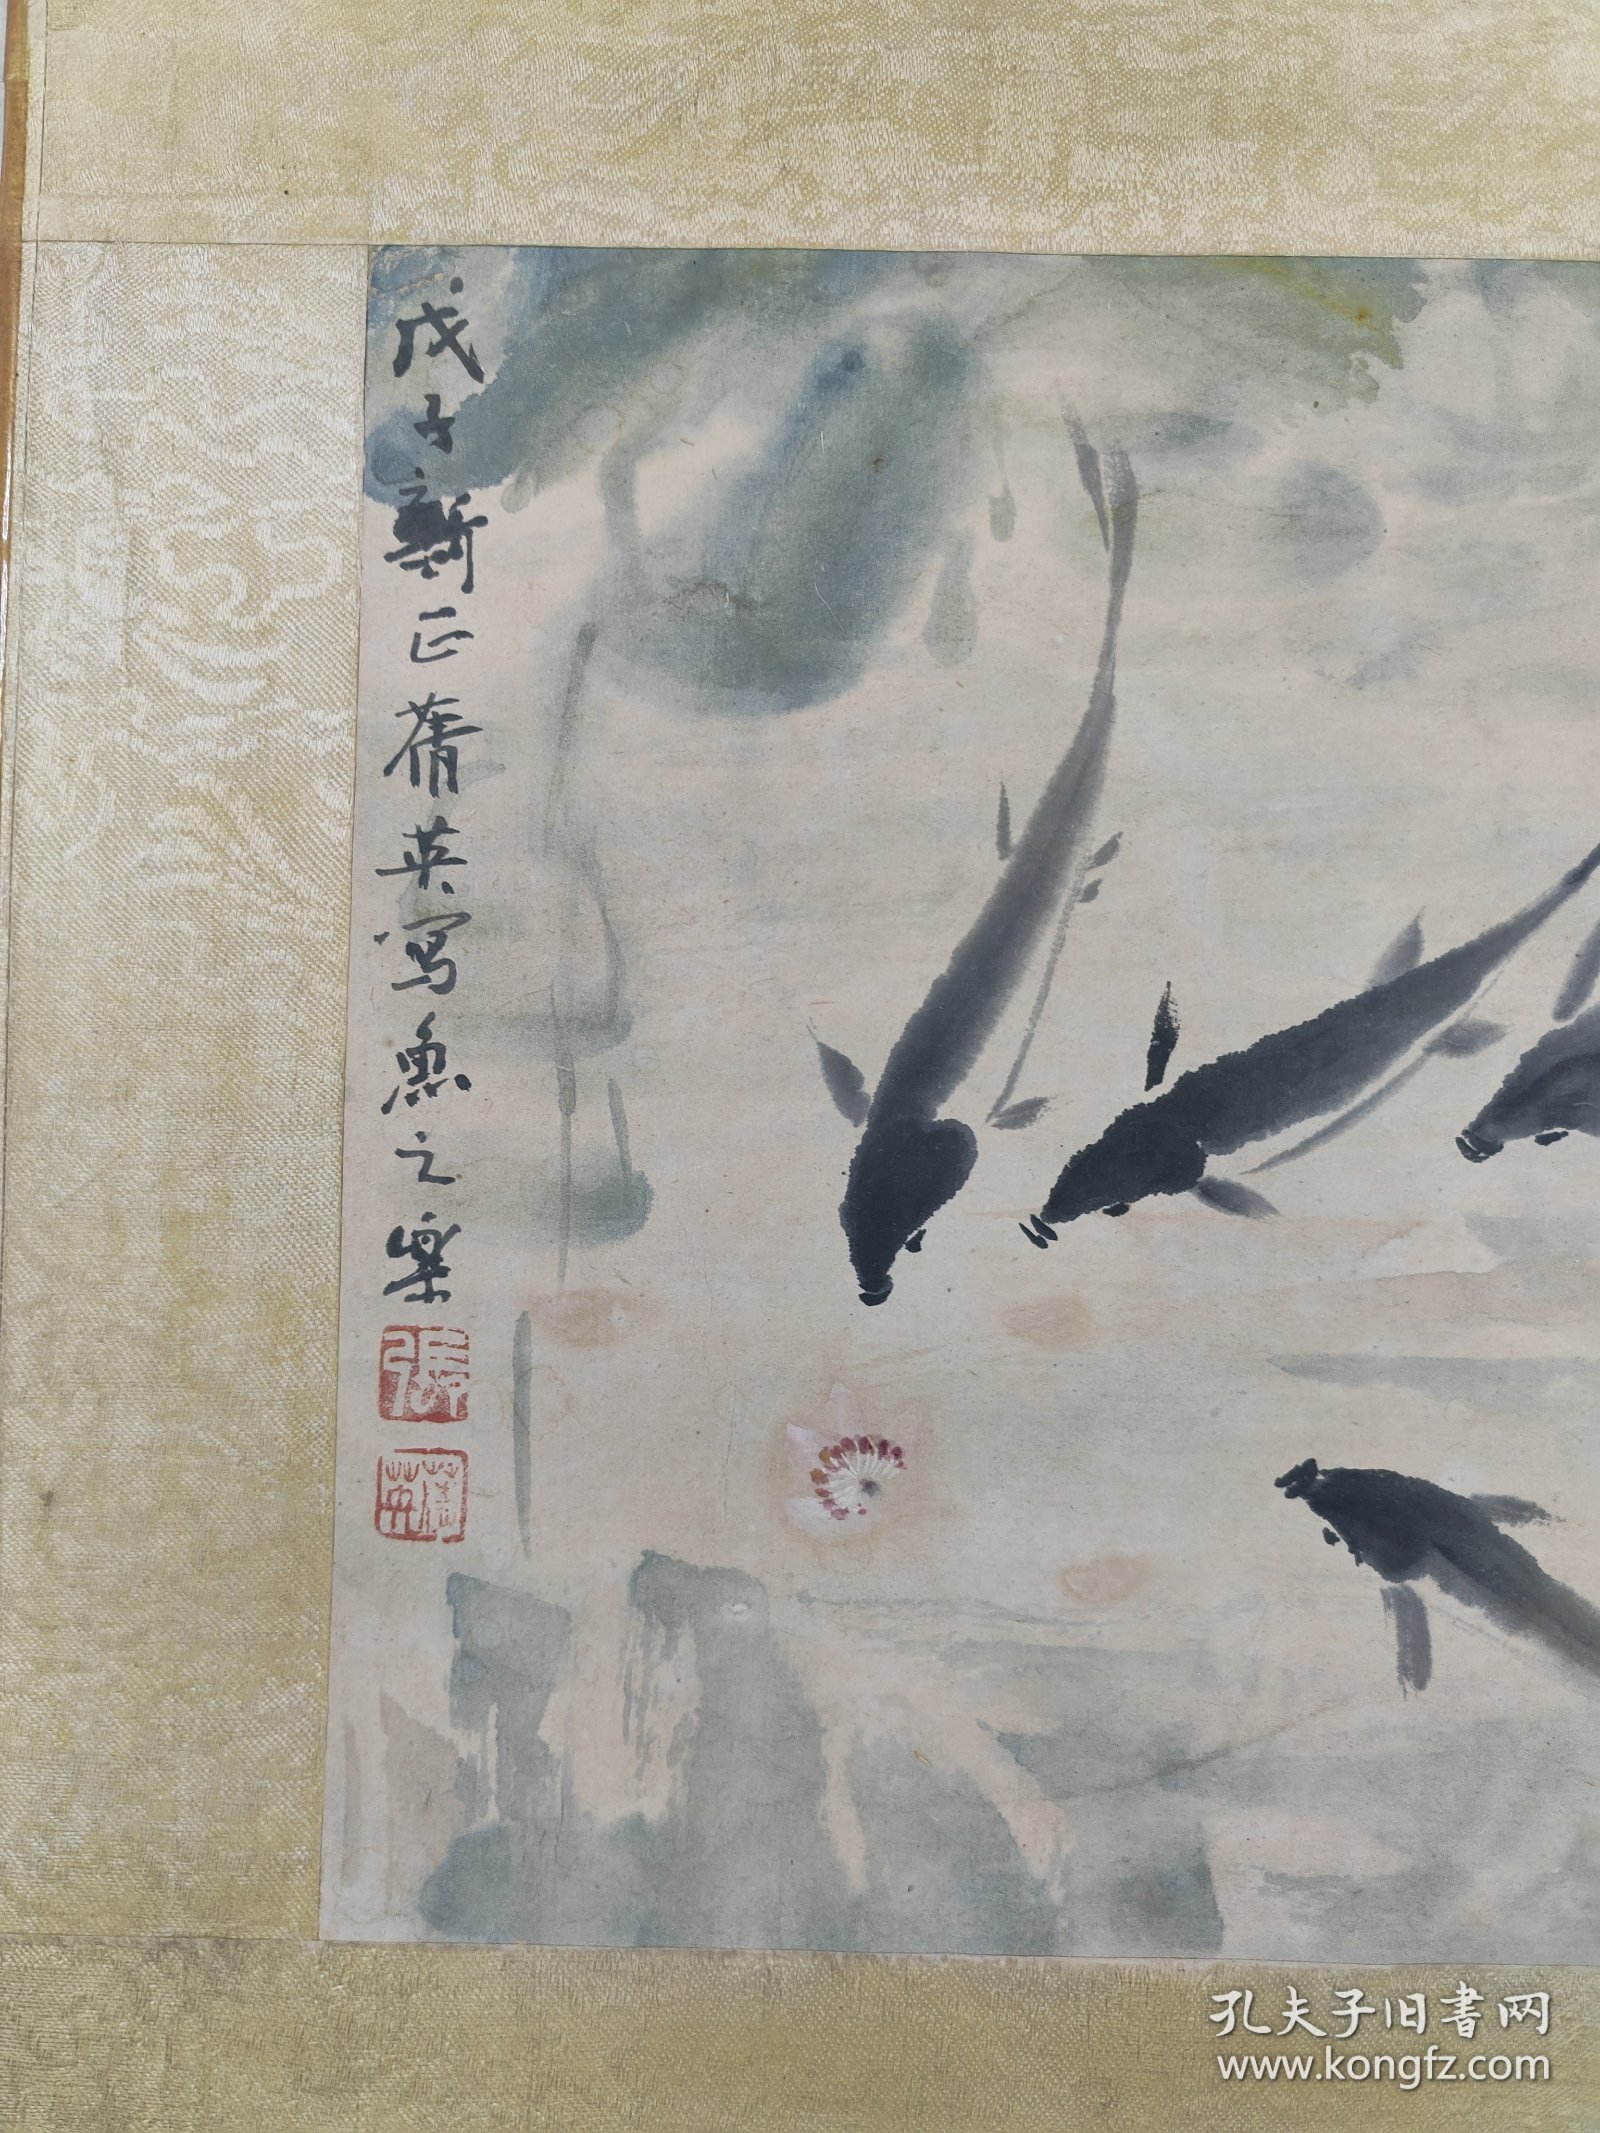 戊子新正蒨英写魚之樂
張
蒨英
孔夫子旧書网
www.kongfz.com